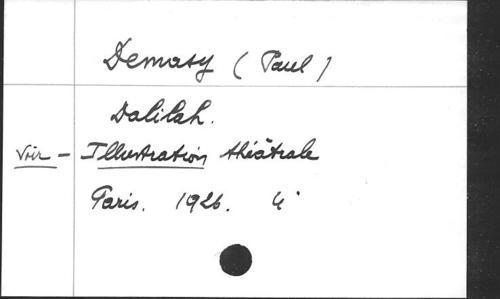 Demasy (Paul)
Dalilah.
Voir - Illustration théâtrale
Paris. 1926. 4°